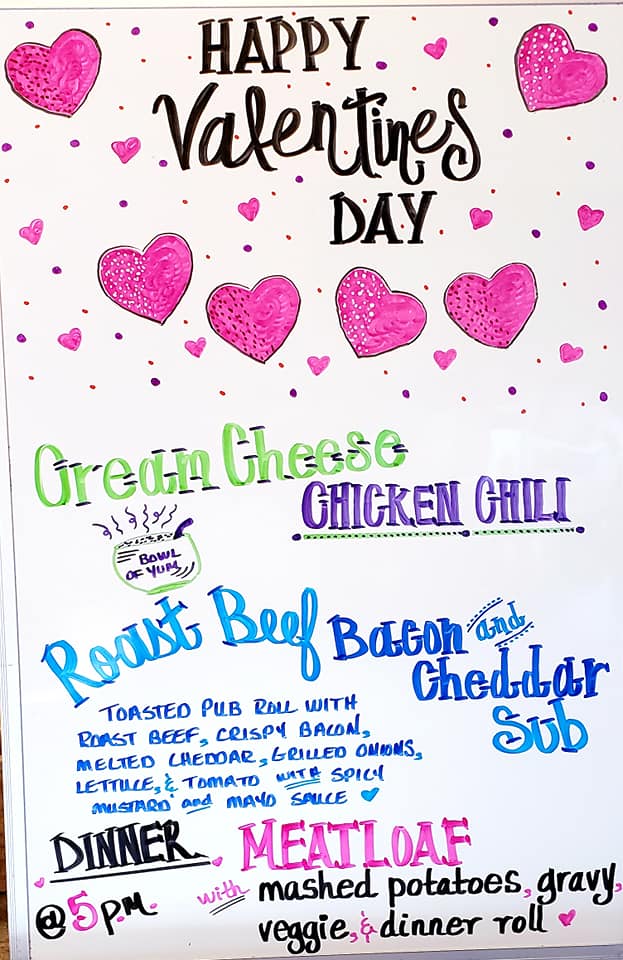 HAPPY
Valentines
DAY
Cream Cheese
CHICKEN CHILI
BOWL
OF YUM
Roast Beef Bacon and
Cheddar
Sub
TOASTED PUB ROLL WITH
ROAST BEEF, CRISPY BACON,
MELTED CHEDDAR, GRILLED ONIONS,
LETTUCE, & TOMATO WITH SPICY
MUSTARD and MAYO SAUCE
DINNER
@ 5 P.M.
MEATLOAF
with mashed potatoes, gravy,
veggie, & dinner roll